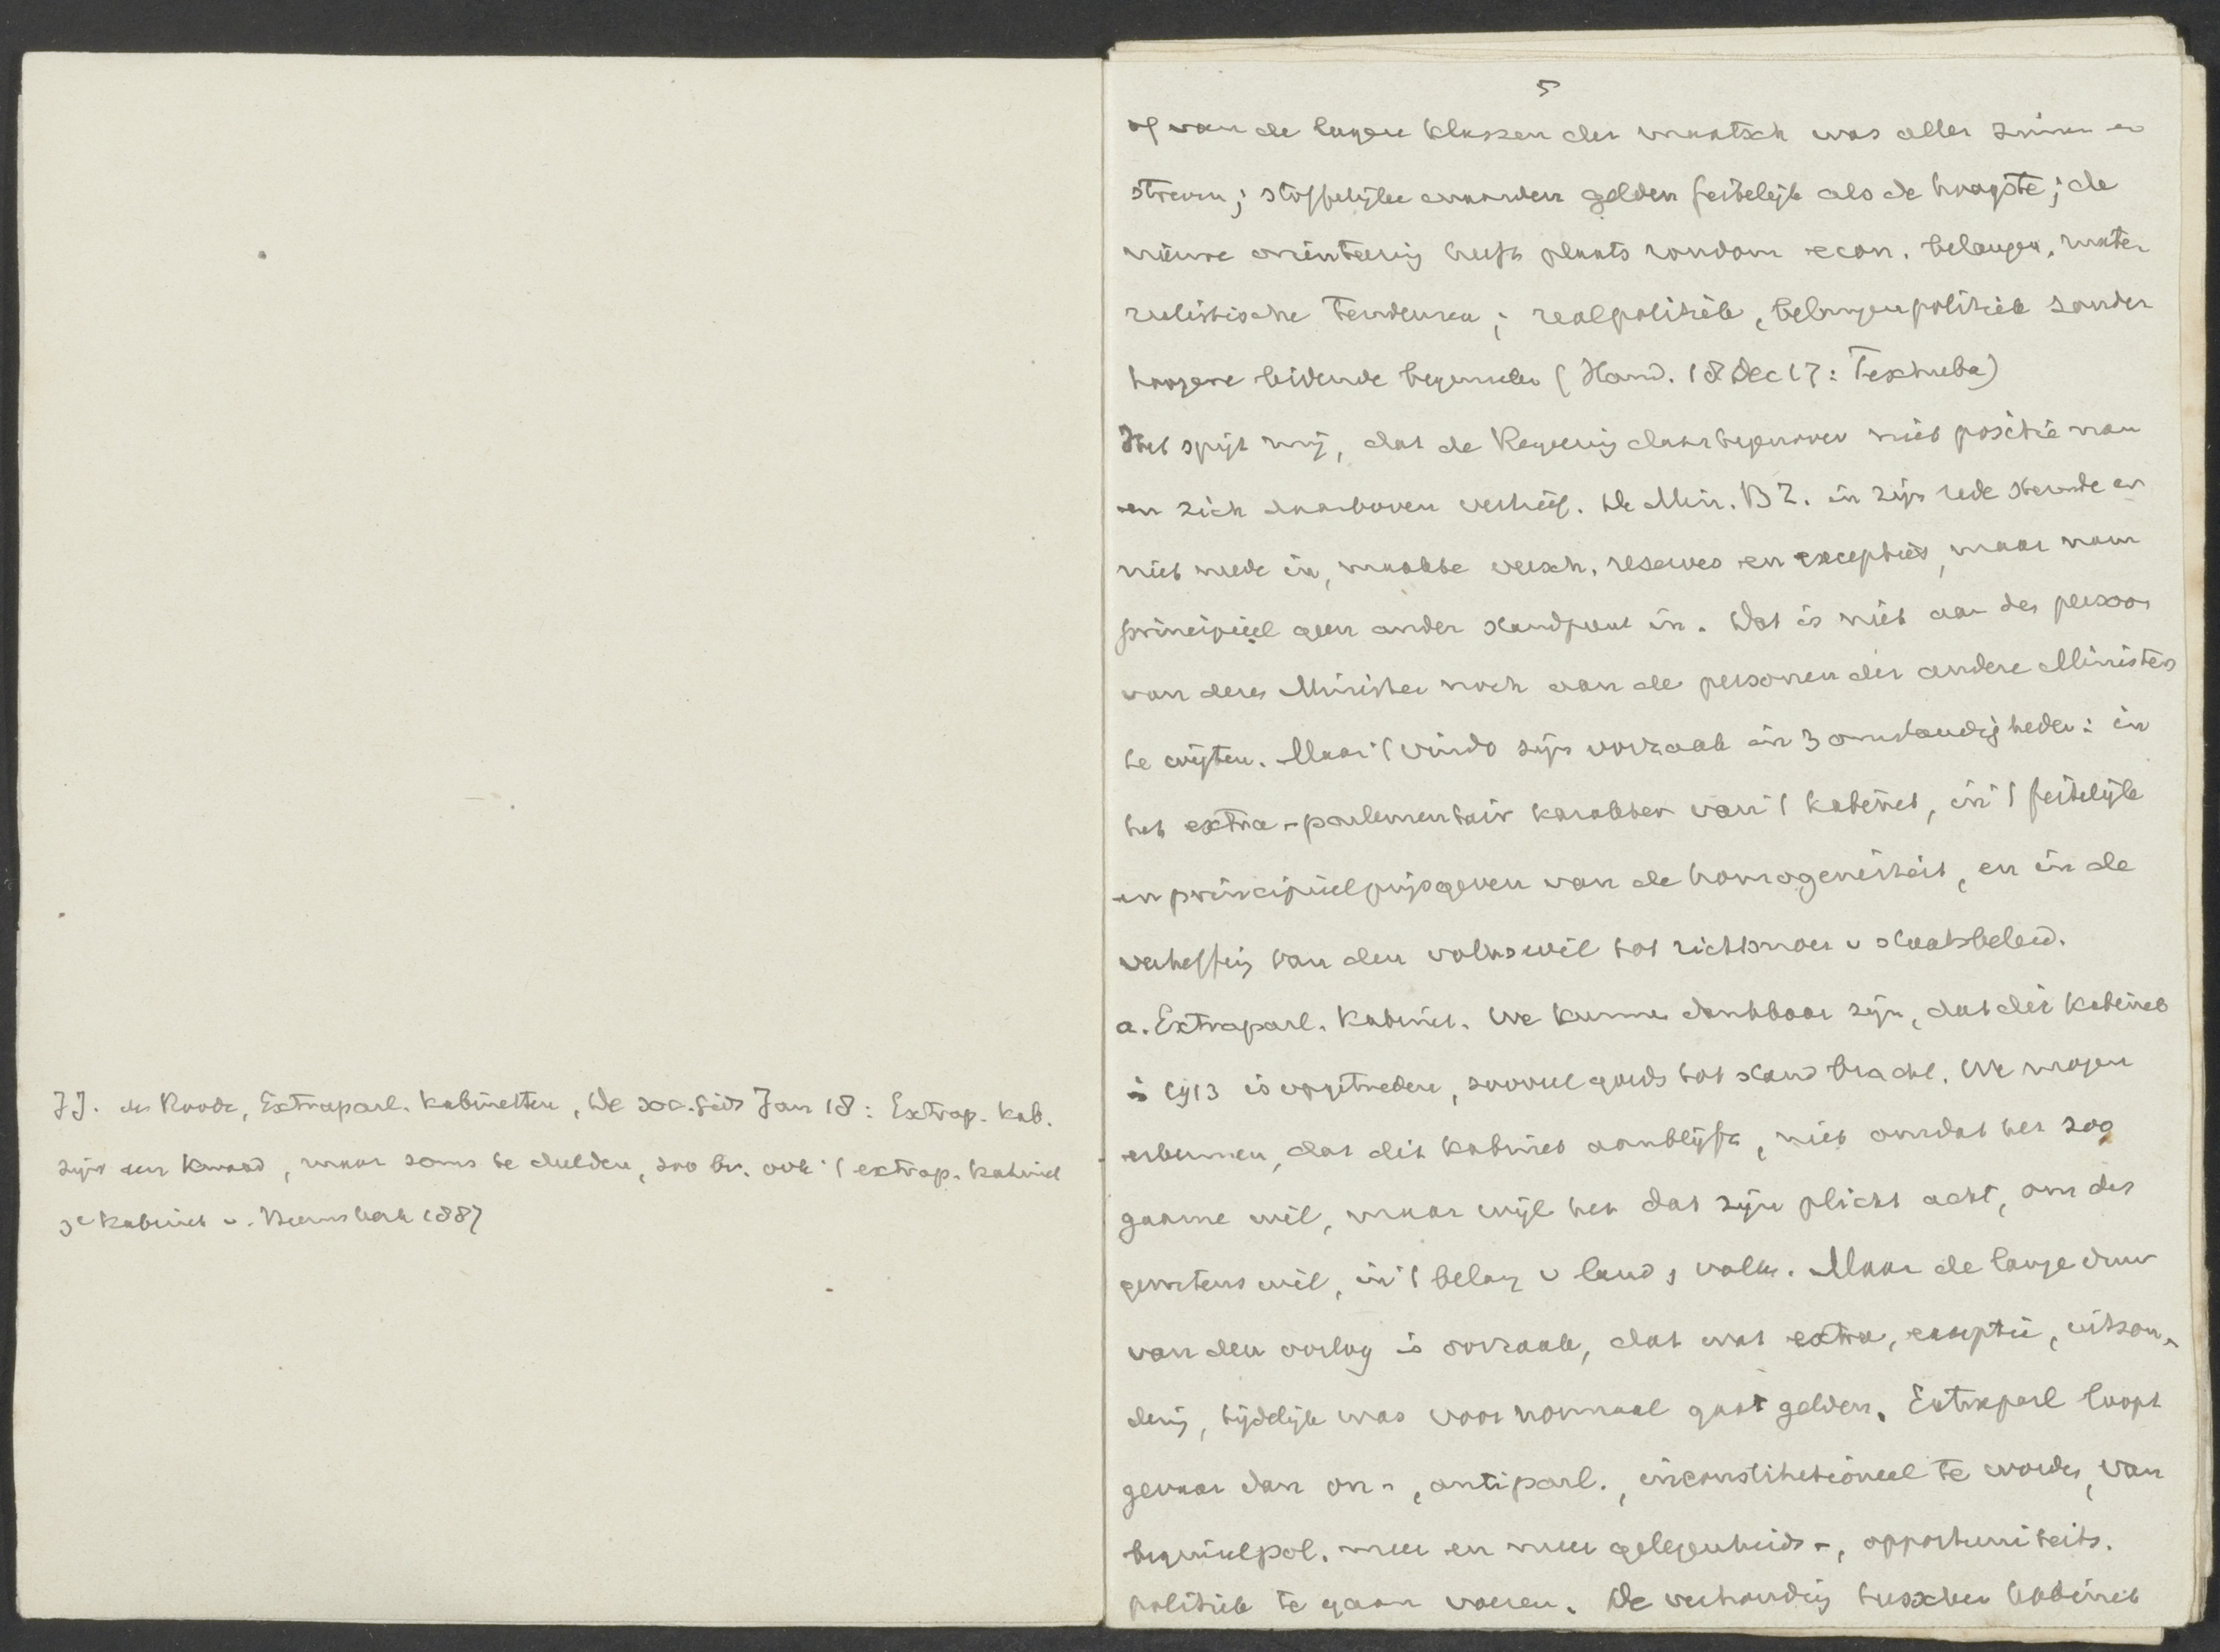 JJ. de Roode, Extraparl. kabinetten, De soc. gids Jan 18: Extrap. kab.
zijn een kwaad, maar soms te dulden, zoo bv. ook 't extrap. kabinet
3e kabinet v. Heemskerk 1887
5
of van de lagere klassen der maatsch was aller zinnen en
streven; stoffelijke waarden gelden feitelijk als de hoogste; de
nieuwe orienteering heeft plaats rondom econ. belangen, mater
ialistische tendenzen; realpolitiek, belangenpolitiek zonder
hoogere leidende beginselen (Hand. 18 Dec 17:
Het spijt mij, dat de Regeering daartegenover niet positie nam
en zich daarboven verhief. De Min. BZ. in zijn rede stemde er
niet mede in, maakte versch. reserves en excepties, maar nam
principieel geen ander standpunt in. Dat is niet aan den persoon
van dezen Minister noch aan de personen der andere Ministers
te wijten. Maar 't vindt zijn oorzaak in 3 omstandigheden: in
het extra-parlementair karakter van 't kabinet, in 't feitelijk
en principieel prijsgeven van de homogeniteit, en in de
verheffing van den volkswil tot richtsnoer v staatsbeleid.
a. Extraparl. kabinet. We kunnen dankbaar zijn, dat dit kabinet
in 1913 is opgetreden, zooveel goeds tot stand bracht. We mogen
erkennen, dat dit kabinet aanblijft, niet omdat het zoo
gaarne wil, maar wijl het dat zijn plicht acht, om des
gewetens wil, in 't belang v land & volk. Maar de lange duur
van den oorlog is oorzaak, dat wat extra, exceptie, uitzon-
dering, tijdelijk was voor normaal gaat gelden. Extraparl loopt
gevaar dan on-, antiparl., inconstitutioneel te worden, van
beginselpol. meer en meer gelegenheids-, opportuniteits.
politiek te gaan voeren. De verhouding tusschen kabinet